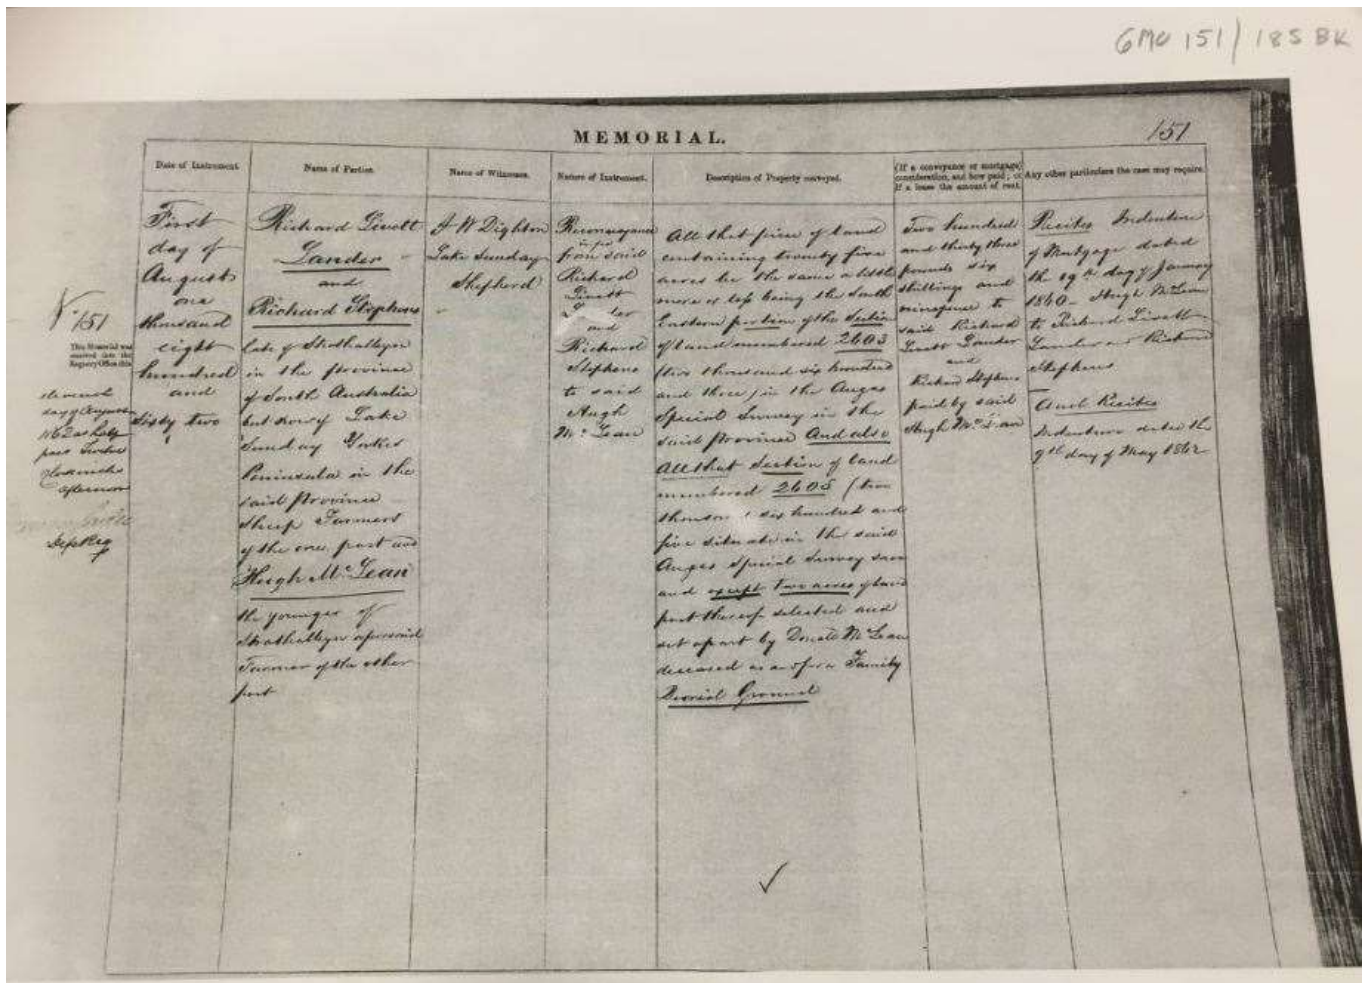 GMO 151/185 BK
MEMORIAL.
151
Date of Instrument.
Name of Parties.
Name of Witnesses.
Nature of Instrument.
Description of Property conveyed.
(If a conveyance or mortgage)
consideration, and how paid; or
if a lease the amount of rent.
Any other particulars the case may require.
No. 151
This Memorial was
received into the
Registry Office this
eleventh
day of August
1862 at half
past Twelve
o'clock
afternoon
Dep Reg
First
day of
August
one
thousand
eight
hundred
and
Sixty two
Richard Livett
Lander
and
Richard Stephens
late of Strathalbyn
in the province
of South Australia
but now of Lake
Sunday Yorkes
Peninsula in the
said Province
Sheep Farmers
of the one part and
Hugh McLean
the younger of
Strathalbyn aforesaid
Farmer of the other
part
A W Dighton
Lake Sunday
Shepherd
Reconveyance
from said
Richard
Livett
Lander
and
Richard
Stephens
to said
Hugh
McLean
All that piece of land
containing twenty five
acres be the same a little
more or less being the South
Eastern portion of the Section
of land numbered 2603
(two thousand six hundred
and three) in the Angas
Special Survey in the
said province And also
All that Section of land
numbered 2605 (two
thousand six hundred and
five situate in the said
Angas Special Survey save
and except two acres of land
part thereof selected and
set apart by Donald McLean
deceased as and for a Family
Burial Ground
Two hundred
and thirty three
pounds six
shillings and
ninepence to
said Richard
Livett Lander
and
Richard Stephens
paid by said
Hugh McLean
Recites Indenture
of Mortgage dated
the 19th day of January
1860 - Hugh McLean
to Richard Livett
Lander and Richard
Stephens
And Recites
Indenture dated the
9th day of May 1862